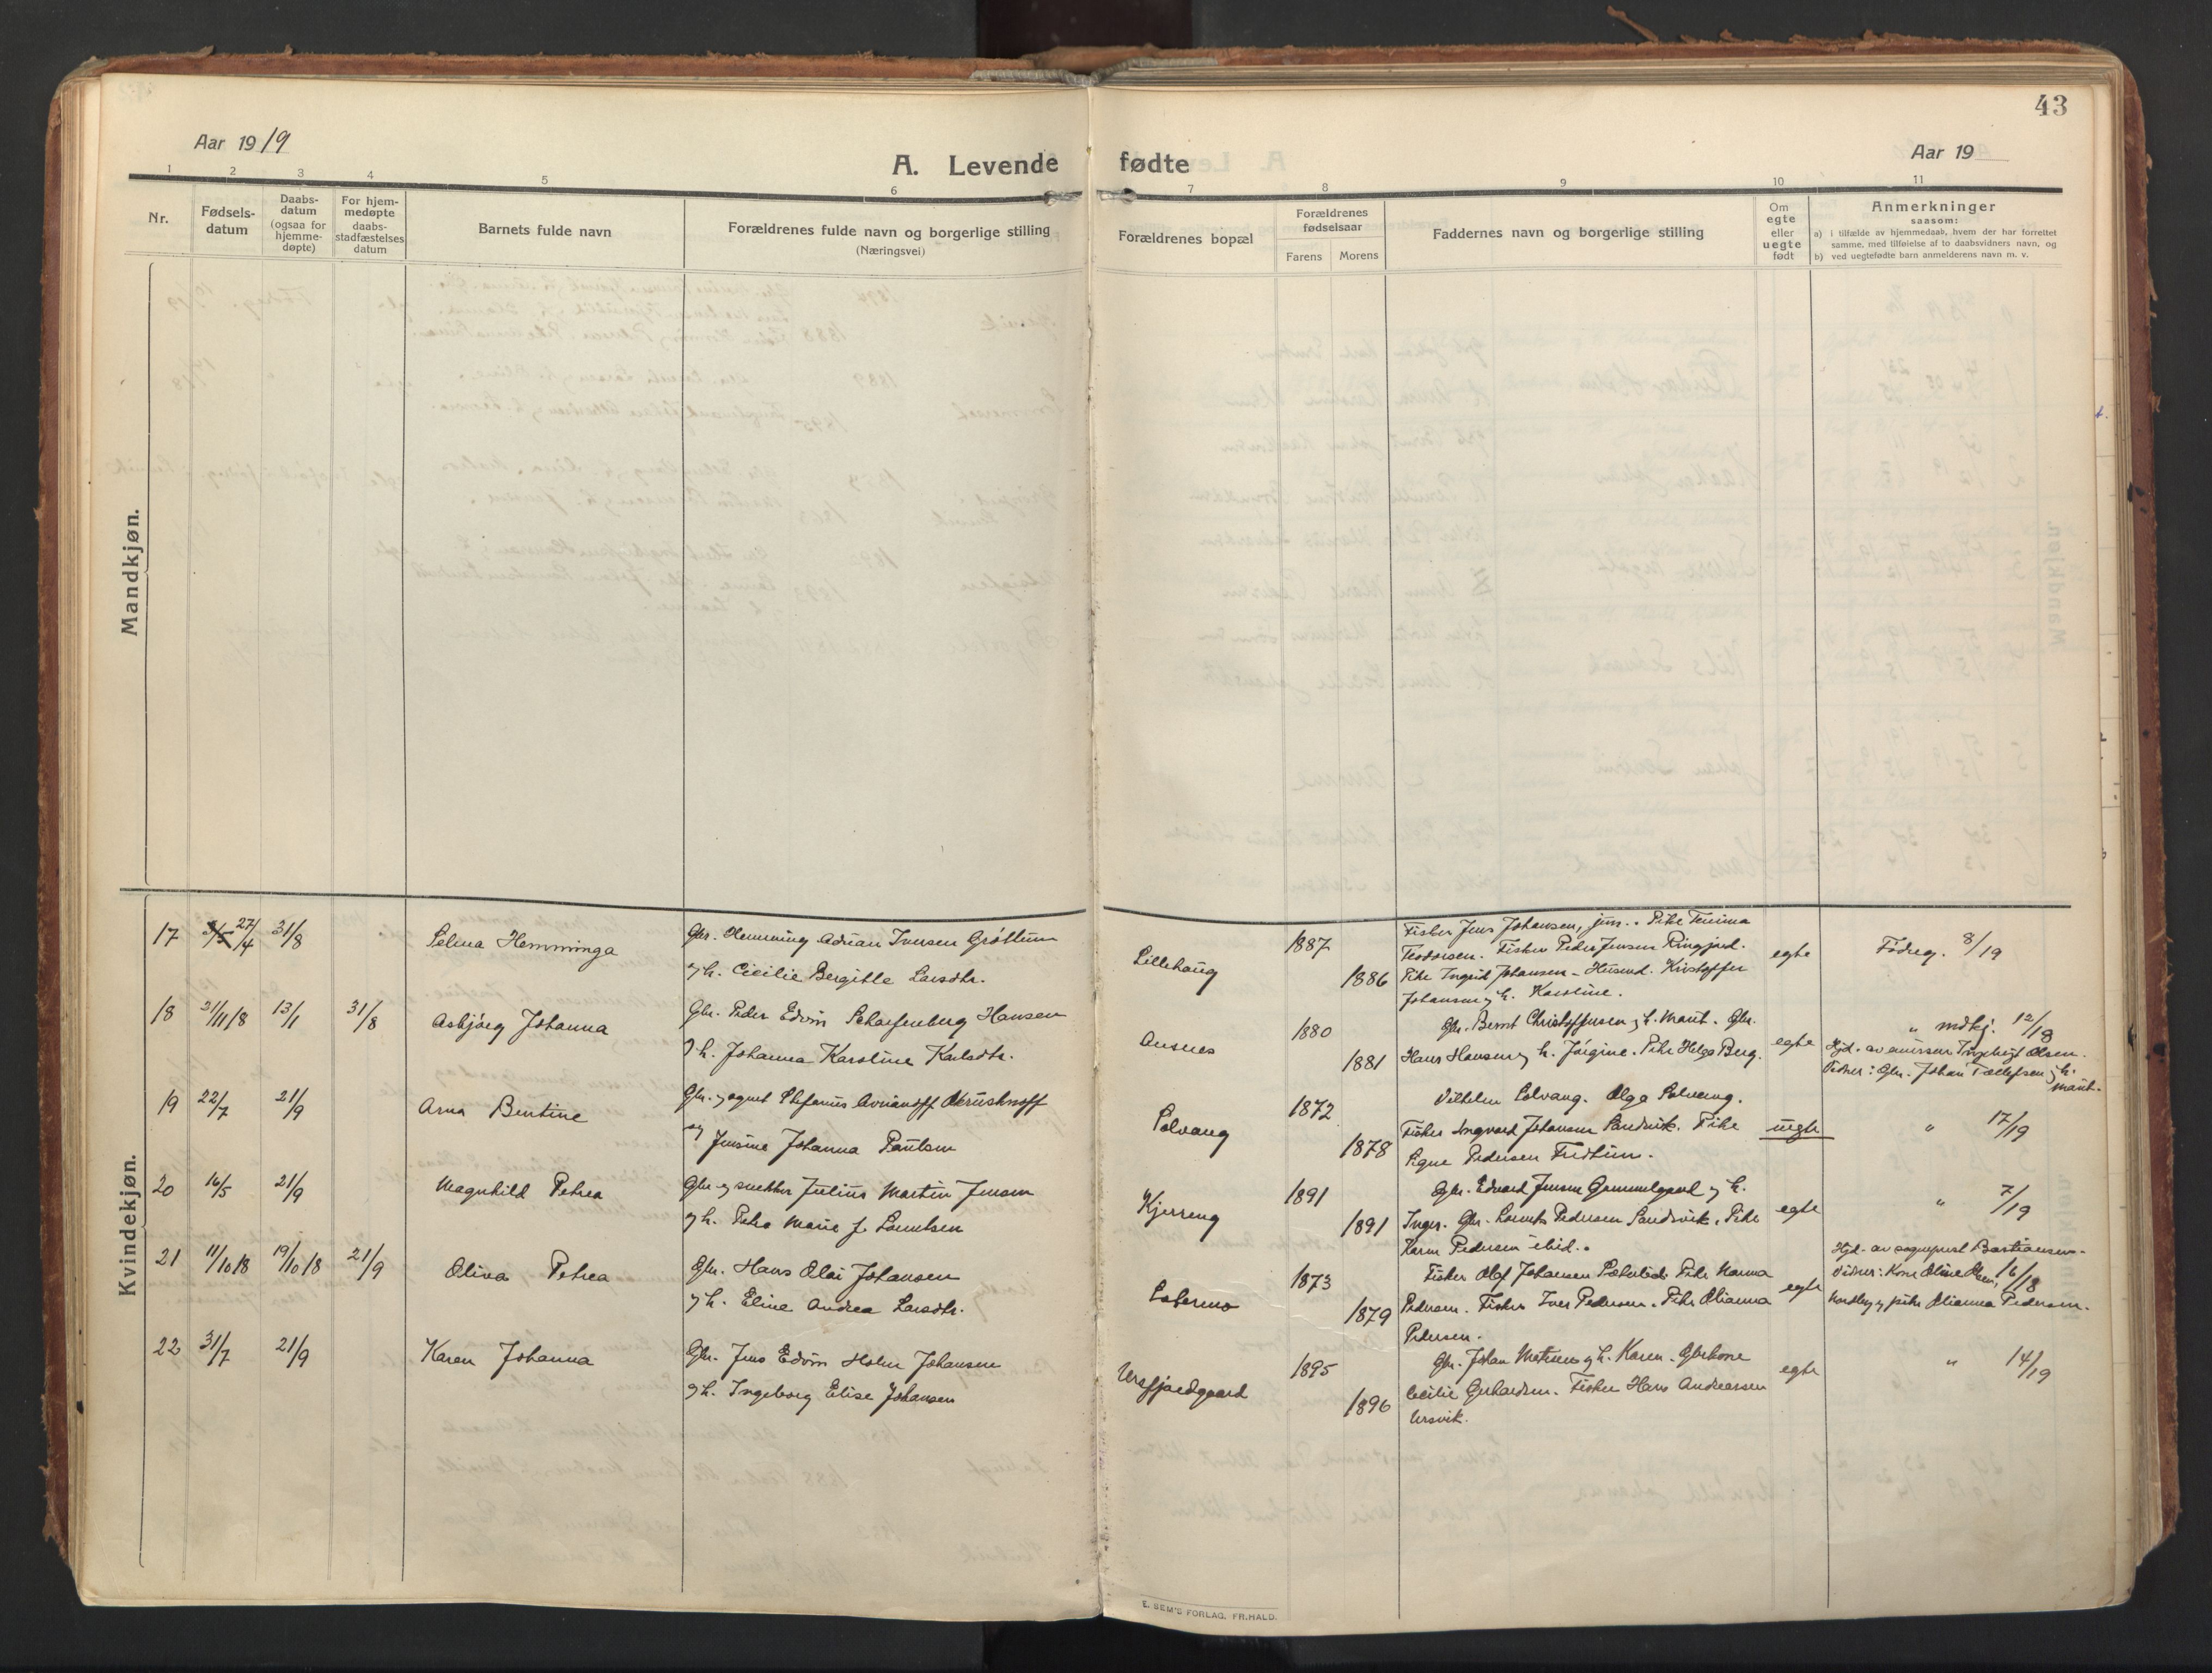 43
Aar 1919
A. Levende fødte
Aar 19
1 2 3 4 5 6 7 8 9 10 11
Nr.
Fødsels-
datum
Daabs-
datum
(ogsaa for
hjemme-
døpte)
For hjem-
medøpte
daabs-
stadfæstelses
datum
Barnets fulde navn
Forældrenes fulde navn og borgerlige stilling
(Næringsvei)
Forældrenes bopæl
Forældrenes
fødselsaar
Farens Morens
Faddernes navn og borgerlige stilling
Om
egte
eller
uegte
født
Anmerkninger
saasom:
a) i tilfælde av hjemmedaab, hvem der har forrettet
samme, med tilføielse af to daabsvidners navn, og
b) ved uegtefødte barn anmelderens navn m. v.
Mandkjøn.
Kvindekjøn.
17 27/4 31/8 Selma Hemminga
Gbr. Hemming Adrian Iversen Grøttum
og h. Cicilie Bergitte Larsdtr.
Lillehaug 1887 1886
Fisker Jens Johansen, jun.. Pike
Teodorsen. Fisker Peder Jensen
Pike Ingrid Johansen - Husmd. Kristoffer
Johansen og h. Karoline.
egte Fødreg. 8/19
18 21/11 18 13/1 31/8 Asbjørg Johanna
Gbr. Peder Edvin Scharfenberg Hansen
og h. Johanna Karoline Karlsdtr.
Ausnes 1880 1881
Gbr. Bernt Christoffersen og h. Marit. Gbr.
Hans Hansen og h. Jørgine. Pike Helga Berg.
egte " mdkj. 12/19
Hjd. av emissær Ingebrigt Olsen.
Vidner: Gbr. Johan Tollefsen og h.
Marit.
19 22/7 21/9 Arna Bentine
Gbr. og agent Stefanus
og Jensine Johanna Paulsen
Solvang 1872 1878
Vilhelm Solvang. Olga Solvang.
Fisker Ingvard Johansen Sandvik. Pike
Signe Pedersen
uegte " 17/19
20 16/5 21/9 Magnhild Petrea
Gbr. og snekker Julius Martin Jensen
og h. Petra Marie f. Lorentsen
Kjerreng 1891 1891
Gbr. Edvard Jensen Gammelgaard og h.
Inger. Gbr. Lorents Pedersen Sandsvik. Pike
Karen Pedersen ibid..
egte " 7/19
21 11/10 18 19/10 18 21/9 Oliva Petrea
Gbr. Hans Olai Johansen
og h. Eline Andrea Larsdtr.
1873 1879
Fisker Olaf Johansen Pike Hanna
Pedersen. Fisker Iver Pedersen. Pike Olianna
Pedersen.
egte
Hjd. av sogneprest Bastiansen.
Vidner: Kone Oline Olsen, 16/18
Nordberg og pike Olianna Pedersen.
22 31/7 21/9 Karen Johanna
Gbr. Jens Edvin Holm Johansen
og h. Ingeborg Elise Johansen
Ursfjordgaard 1895 1896
Gbr. Johan og h. Karen. Gbrkone
Cecilie Gerhardsen. Fisker Hans Andreassen
Ursvik.
egte " 14/19
E. SEM'S FORLAG. FR.HALD.